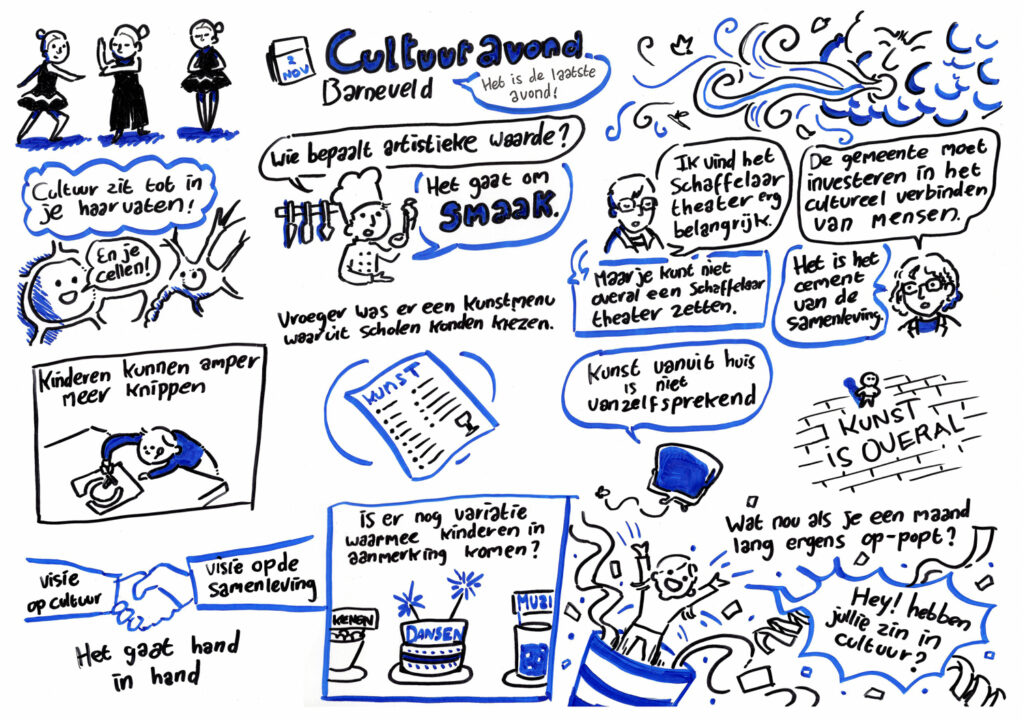 2
NOV
Cultuuravond
Barneveld
Het is de laatste
avond!
Cultuur zit tot in
je haarvaten!
En je
cellen!
Wie bepaalt artistieke waarde?
Het gaat om
SMAAK.
Vroeger was er een kunstmenu
waaruit scholen konden kiezen.
KUNST
Ik vind het
Schaffelaar
theater erg
belangrijk.
Maar je kunt niet
overal een Schaffelaar
theater zetten.
De gemeente moet
investeren in het
cultureel verbinden
van mensen.
Het is het
cement
van de
samenleving.
Kinderen kunnen amper
meer knippen
Kunst vanuit huis
is niet
vanzelfsprekend
KUNST
iS OVERAL
visie
op cultuur
visie op de
samenleving
Het gaat hand
in hand
is er nog variatie
waarmee kinderen in
aanmerking komen?
KENEN
DANSEN
MUZI
Wat nou als je een maand
lang ergens op-popt?
Hey! hebben
jullie zin in
cultuur?